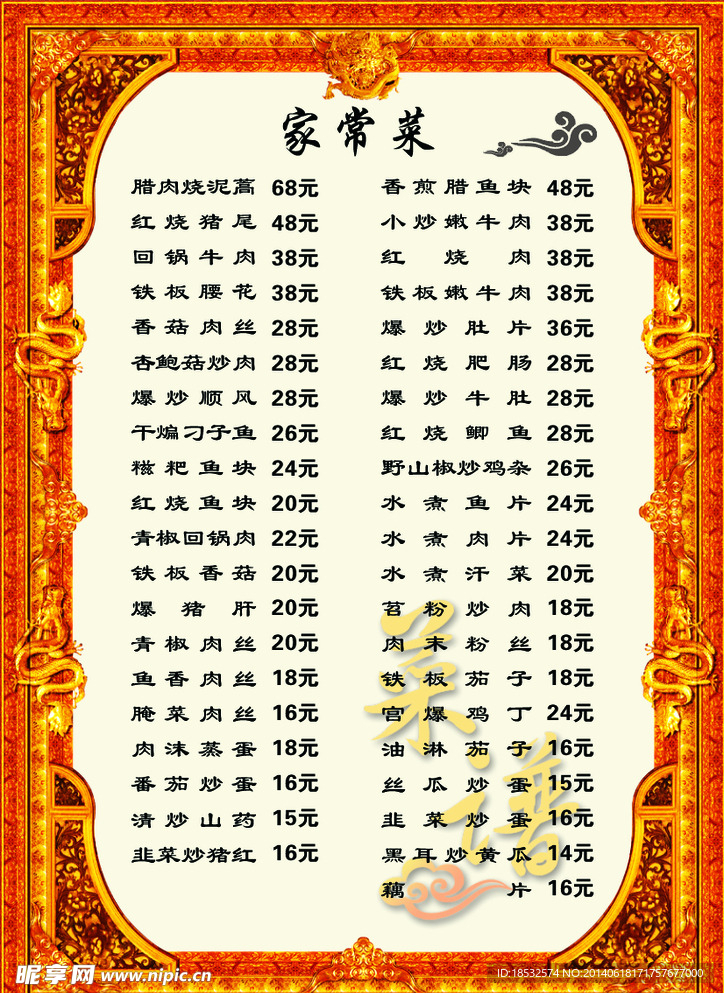 家常菜
腊肉烧泥蒿 68元
红烧猪尾 48元
回锅牛肉 38元
铁板腰花 38元
香菇肉丝 28元
杏鲍菇炒肉 28元
爆炒顺风 28元
干煸刁子鱼 26元
糍粑鱼块 24元
红烧鱼块 20元
青椒回锅肉 22元
铁板香菇 20元
爆猪肝 20元
青椒肉丝 20元
鱼香肉丝 18元
腌菜肉丝 16元
肉沫蒸蛋 18元
番茄炒蛋 16元
清炒山药 15元
韭菜炒猪红 16元
香煎腊鱼块 48元
小炒嫩牛肉 38元
红烧肉 38元
铁板嫩牛肉 38元
爆炒肚片 36元
红烧肥肠 28元
爆炒牛肚 28元
红烧鲫鱼 28元
野山椒炒鸡杂 26元
水煮鱼片 24元
水煮肉片 24元
水煮汗菜 20元
苕粉炒肉 18元
肉末粉丝 18元
铁板茄子 18元
宫爆鸡丁 24元
油淋茄子 16元
丝瓜炒蛋 15元
韭菜炒蛋 16元
黑耳炒黄瓜 14元
藕片 16元
菜谱
昵享网 www.nipic.cn
ID:18532574 NO:20140618171757677000